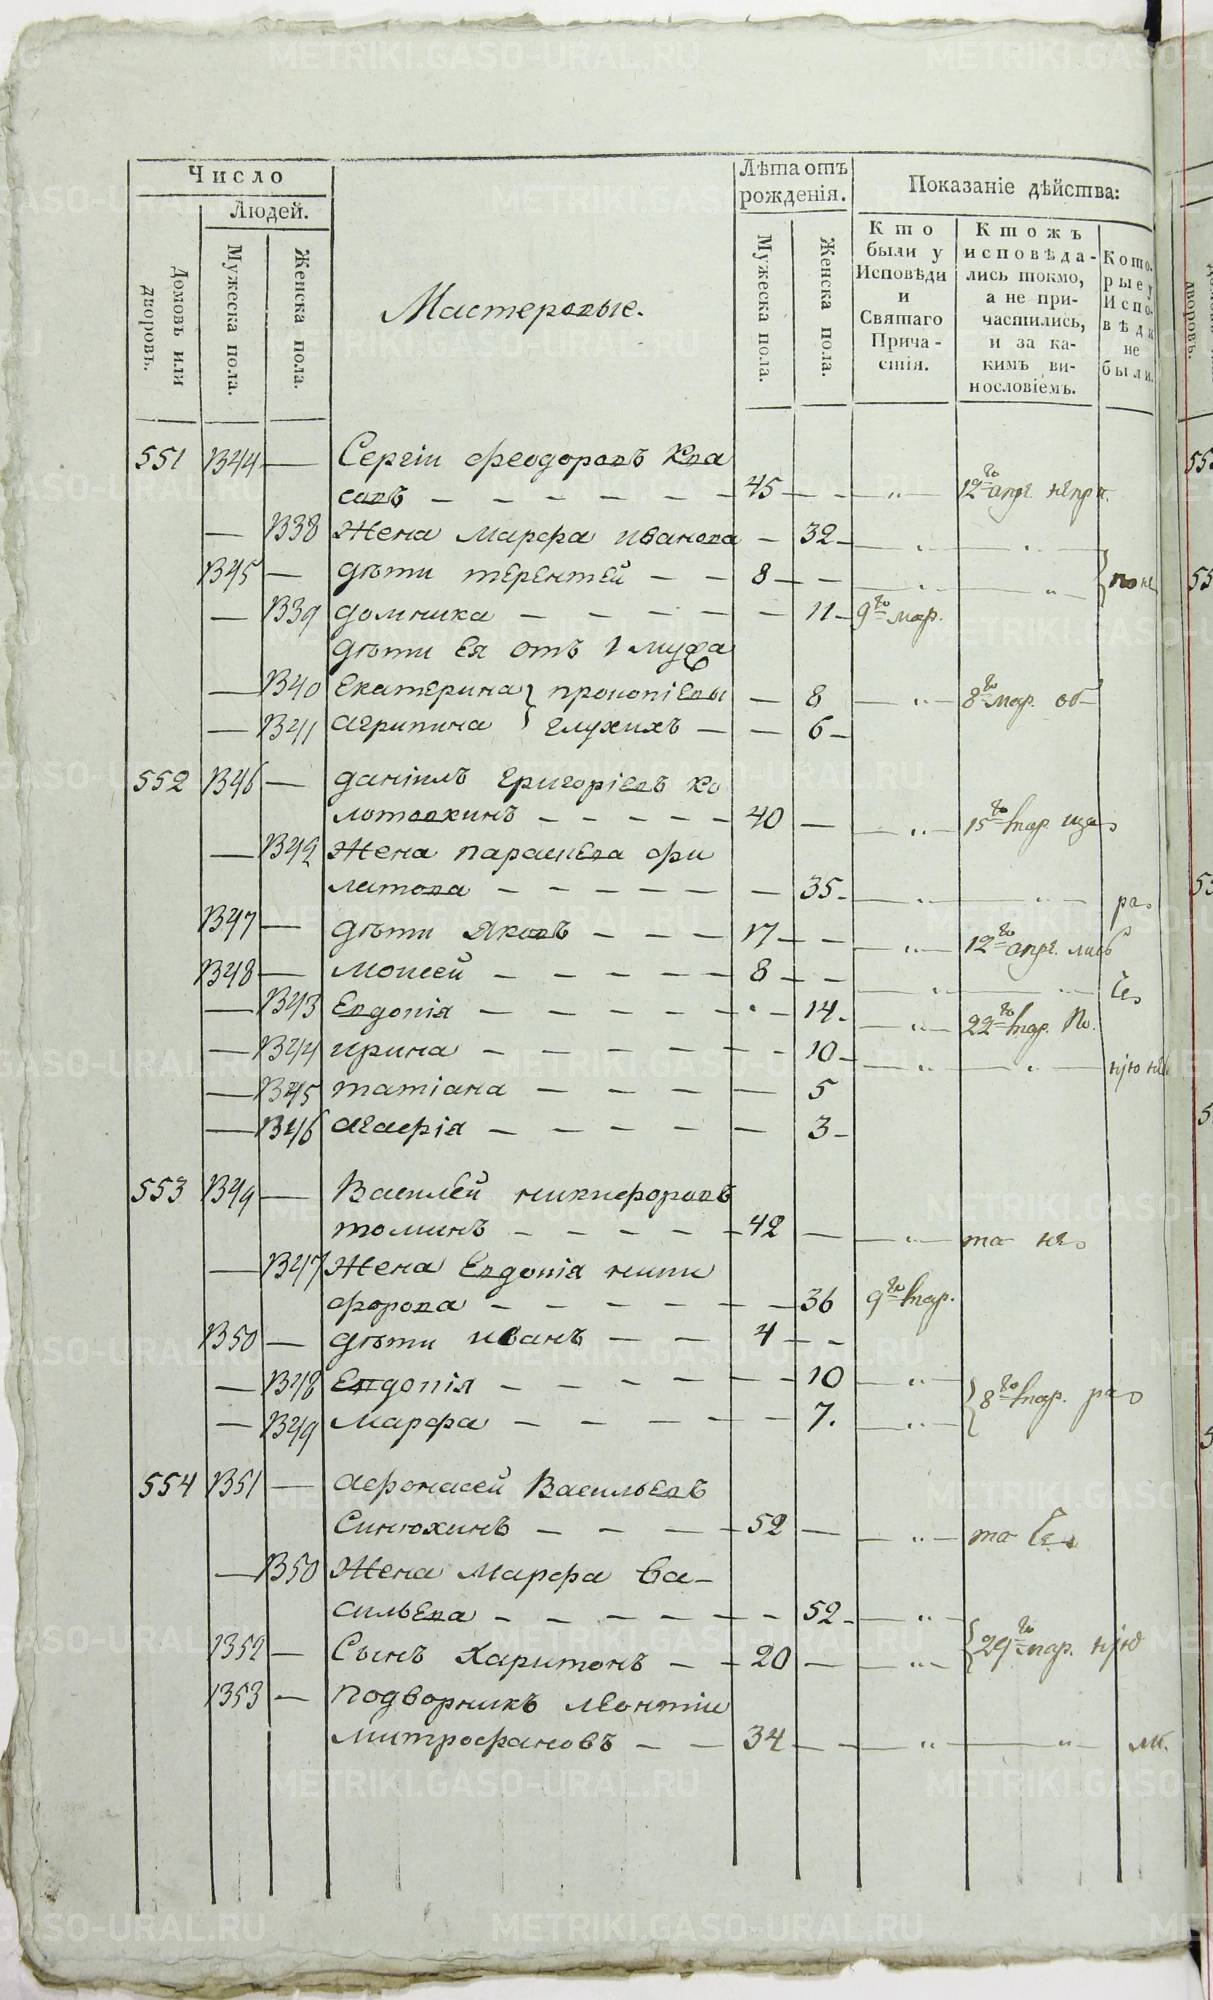 Число
Людей.
Домовъ или дворовъ.
Мужеска пола.
Женска пола.
Мастеровые.
Лѣта отъ рожденія.
Мужеска пола.
Женска пола.
Показаніе дѣйства:
Кто были у Исповѣди и Святаго Причастія.
Ктожъ исповѣдались токмо, а не причастились, и за какимъ винословіемъ.
Которые у Исповѣди не были.
551 1344 — Сергіи Феодоровъ Ква
совъ — 45 — 12го апр.
— 1338 Жена Марфа Иванова — 32
1345 — дѣти Терентей — 8
— 1339 домника — 11 9го мар.
дѣти ея отъ 1 мужа
— 1340 Екатерина } прокопіевы — 8 8го мар.
— 1341 агрипина } глухихъ — 6
552 1346 — даніилъ григоріевъ ко
лотовкинъ — 40 — 15го мар.
— 1342 Жена парасковa фи
латова — 35
1347 — дѣти Яковъ — 17 12го апр.
1348 — моисей — 8
— 1343 Евдокія — 14 22го мар.
— 1344 ирина — 10
— 1345 татіана — 5
— 1346 агафія — 3
553 1349 — Василей никифоровъ
томинъ — 42
— 1347 Жена Евдокія ники
форова — 36 9го мар.
1350 — дѣти иванъ — 4
— 1348 Евдокія — 10 8го мар.
— 1349 Марфа — 7.
554 1351 — афонасей Васильевъ
Синюхинъ — 52
— 1350 Жена Марфа Ва-
сильева — 52
1352 — Сынъ Харитонъ — 20 — 29го мар.
1353 — подворникъ леонтіи
митрофановъ — 34
METRIKI.GASO-URAL.RU